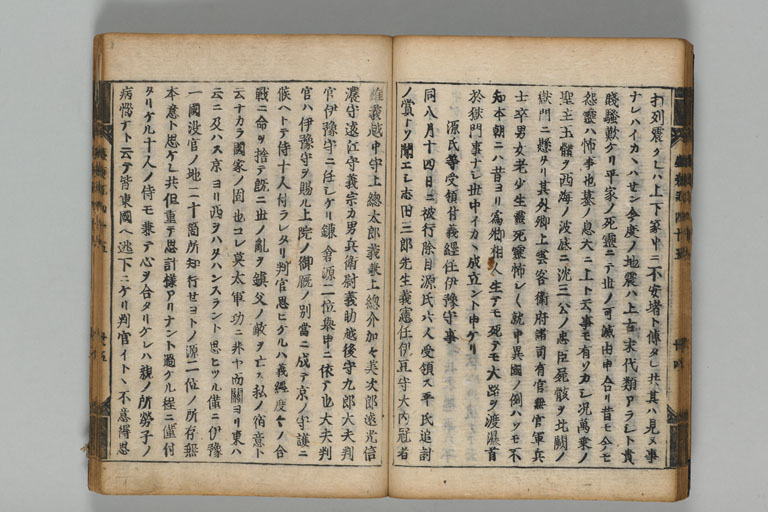 打列震タレハ上下家中ニ不安堵ト傳タレ共其ハ見ヌ事
ナレハイカヽハセン今度ノ地震ハ上古末代類アラシト貴
賤騒歎ケリ平家ノ死靈ニテ世ノ可滅由申合リ昔モ今モ
怨靈ハ怖事也
聖主玉體ヲ西海ノ波底ニ沈三公ノ忠臣屍骸ヲ北闕ノ
獄門ニ懸タリ其外卿上雲客衞府諸司有官無官軍兵
士卒男女老少生靈死靈怖シ就中異國ノ例ハソモ不
知本朝ニハ昔ヨリ爲卿相人生テモ死テモ大路ヲ渡濕首
於獄門事ナシ世中イカヽ成立ント申ケリ
源氏等受領付義經任伊豫守事
同八月十四日ニ被行除目源氏六人受領ス平氏追討
ノ賞トソ聞エシ志田三郎先生義憲任伊豆守大内冠者
維義越中守上總太郎義兼上總介加々美次郎遠光信
濃守遠江守義宗力男兵衞尉義助越後守九郎大夫判
官伊豫守ニ任シケリ鎌倉源二位擧申ニ依テ也大夫判
官ハ伊豫守ヲ賜ル上院ノ御厩ノ別當ニ成テ京ノ守護ニ
候ヘトテ侍十人付ラレタリ判官思ヒケルハ義經度々ノ合
戰ニ命ヲ捨テ既ニ世ノ亂ヲ鎮父ノ敵ヲ亡ス私ノ宿意ト
云ナカラ國家ノ固也コレ莫太軍功ニ非ヤ而關ヨリ東ハ
云ニ及ハス京ヨリ西ヲハタハンスラント思ヒツルニ僅ニ伊豫
一國没官ノ地二十箇所知行セヨトノ源二位ノ所存無
本意ト思ケレ共但重テ思計樣アリナント過ケル程ニ僅付
タリケル十人ノ侍モ兼テ心ヲ合タリケレハ親ノ所勞子ノ
病惱ナト云テ皆東國ヘ逃下ニケリ判官イトヽ不審得思